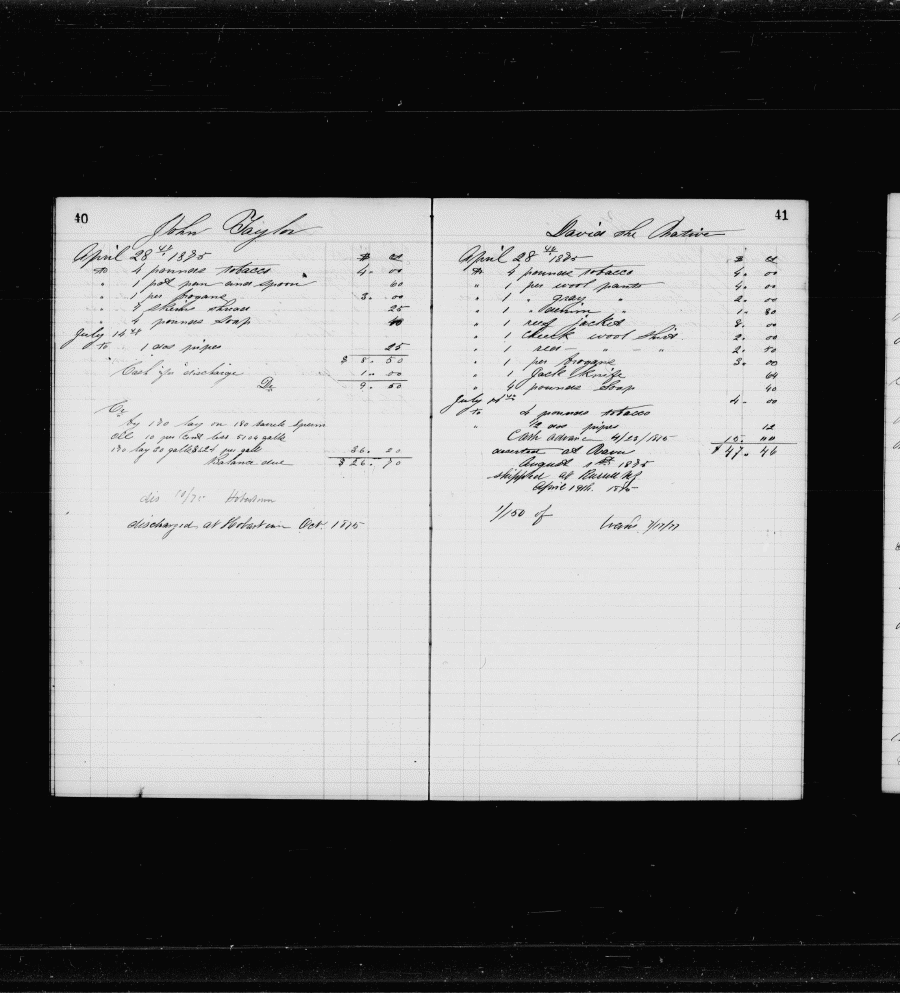 40
John Taylor
April 28th 1875 $ ct
to 4 pounds tobacco 4. 00
" 1 pot pan and spoon 60
" 1 per brogans 3. 00
" skeins thread 25
" 4 pounds soap 40
July 14th
to 1 doz pipes 25
$ 8. 50
Cash discharge 1. 00
Dr 9. 50
Cr
by 180 lay on 180 barrels sperm
oil 10 per cent less 5104 galls
180 lay 20 galls per gall 36. 20
Balance due $ 26. 70
dis 10/75 Hobarttown
discharged at Hobarttown Oct. 1875
41
David the Native
April 28th 1875 $ ct
to 4 pounds tobacco 4. 00
" 1 per wool pants 4. 00
" 1 " gray " 2. 00
" 1 " denim " 1. 80
" 1 reef jacket 8. 00
" 1 check wool shirt. 2. 00
" 1 red " " 2. 50
" 1 per brogans 3. 00
" 1 Jack Knife 64
" 4 pounds soap 40
July 14th 4. 00
to 4 pounds tobacco
" 1/2 doz pipes 12
Cash advance 4/23/1875 15. 00
deserted at $ 47. 46
August 1st 1875
shipped at Russell NZ
April 19th. 1875
1/150 of 7/17/77